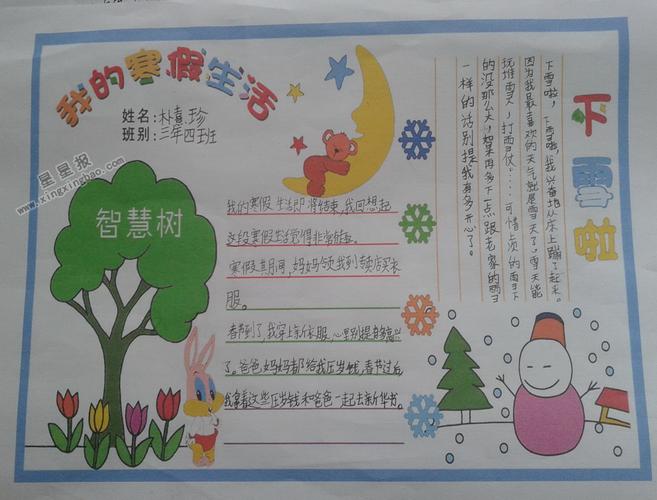 我的寒假生活
姓名:朴熹珍
班别:三年四班
星星报
xingxingbao.com
智慧树
我的寒假生活即将结束,我回想起
这段寒假生活觉得非常
寒假其间,妈妈领我到专卖店买衣
服。
春节到了,我穿上新衣服,心里别提多高兴
了。爸爸,妈妈都给我压岁钱,春节过后
我拿着这些压岁钱和爸爸一起去新华书。
下雪啦
下雪啦,下雪啦,我兴奋地从床上蹦了起来。
因为我最喜欢的天气就是雪天了。雪天能
玩堆雪人,打雪仗....可惜上次的雪下
的没那么大,如果再多下一点跟老家的雪
一样的话别提我有多开心了。